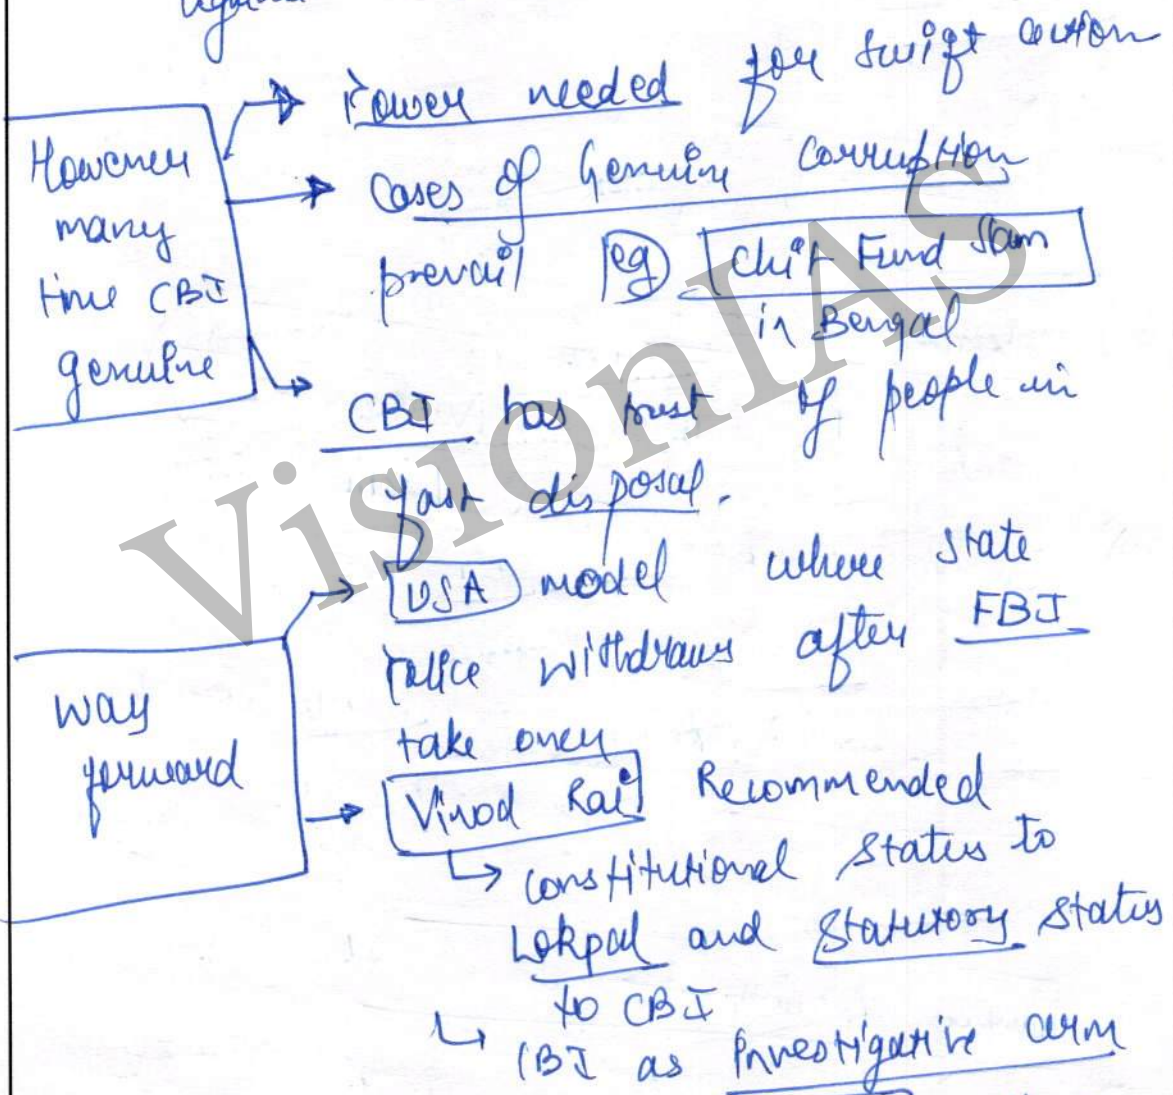 However
many
time CBI
genuine
Power needed for swift action
Cases of Genuine corruption
prevail eg Chit Fund Scam
in Bengal
CBI has trust of people in
fast disposal.
way
forward
USA model where state
police withdraws after FBI
take over
Vinod Rai Recommended
constitutional status to
Lokpal and statutory status
to CBI
CBI as investigative arm
VisionIAS